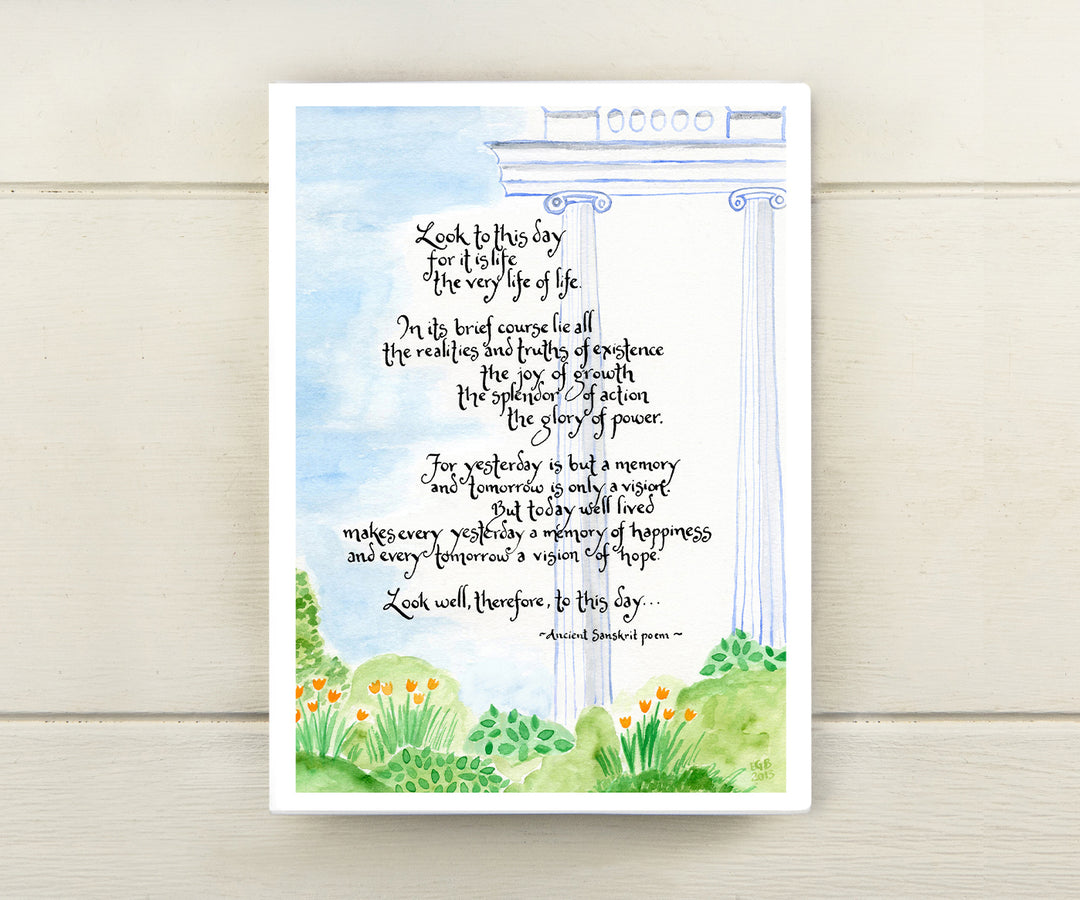 Look to this day
for it is life
the very life of life.
In its brief course lie all
the realities and truths of existence
the joy of growth
the splendor of action
the glory of power.
For yesterday is but a memory
and tomorrow is only a vision.
But today well lived
makes every yesterday a memory of happiness
and every tomorrow a vision of hope.
Look well, therefore, to this day...
~Ancient Sanskrit poem~
EGB
2013